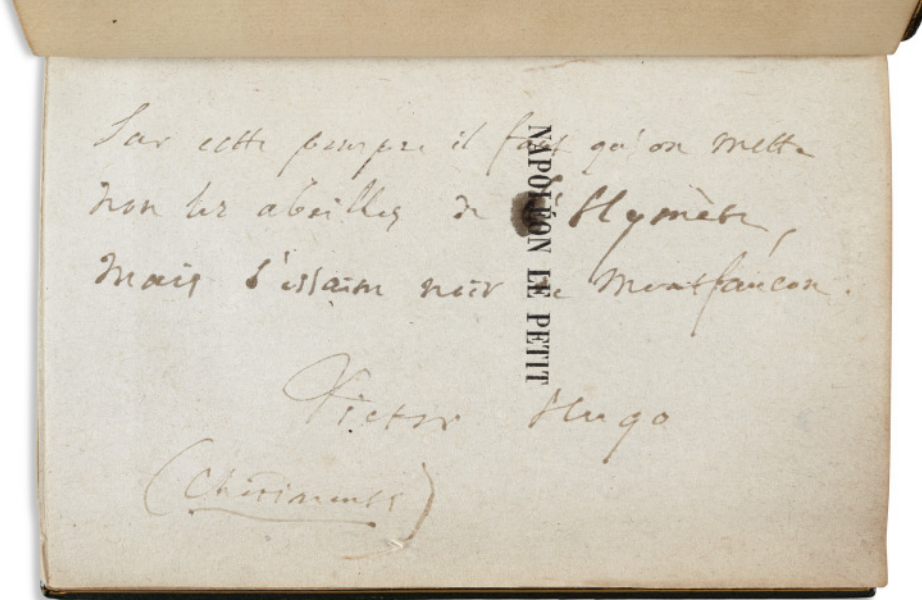 Sur cette pourpre il faut qu'on mette
non les abeilles de l'Hymète,
mais l'essaim noir de Montfaucon.
Victor Hugo
(Châtiments)
NAPOLÉON LE PETIT